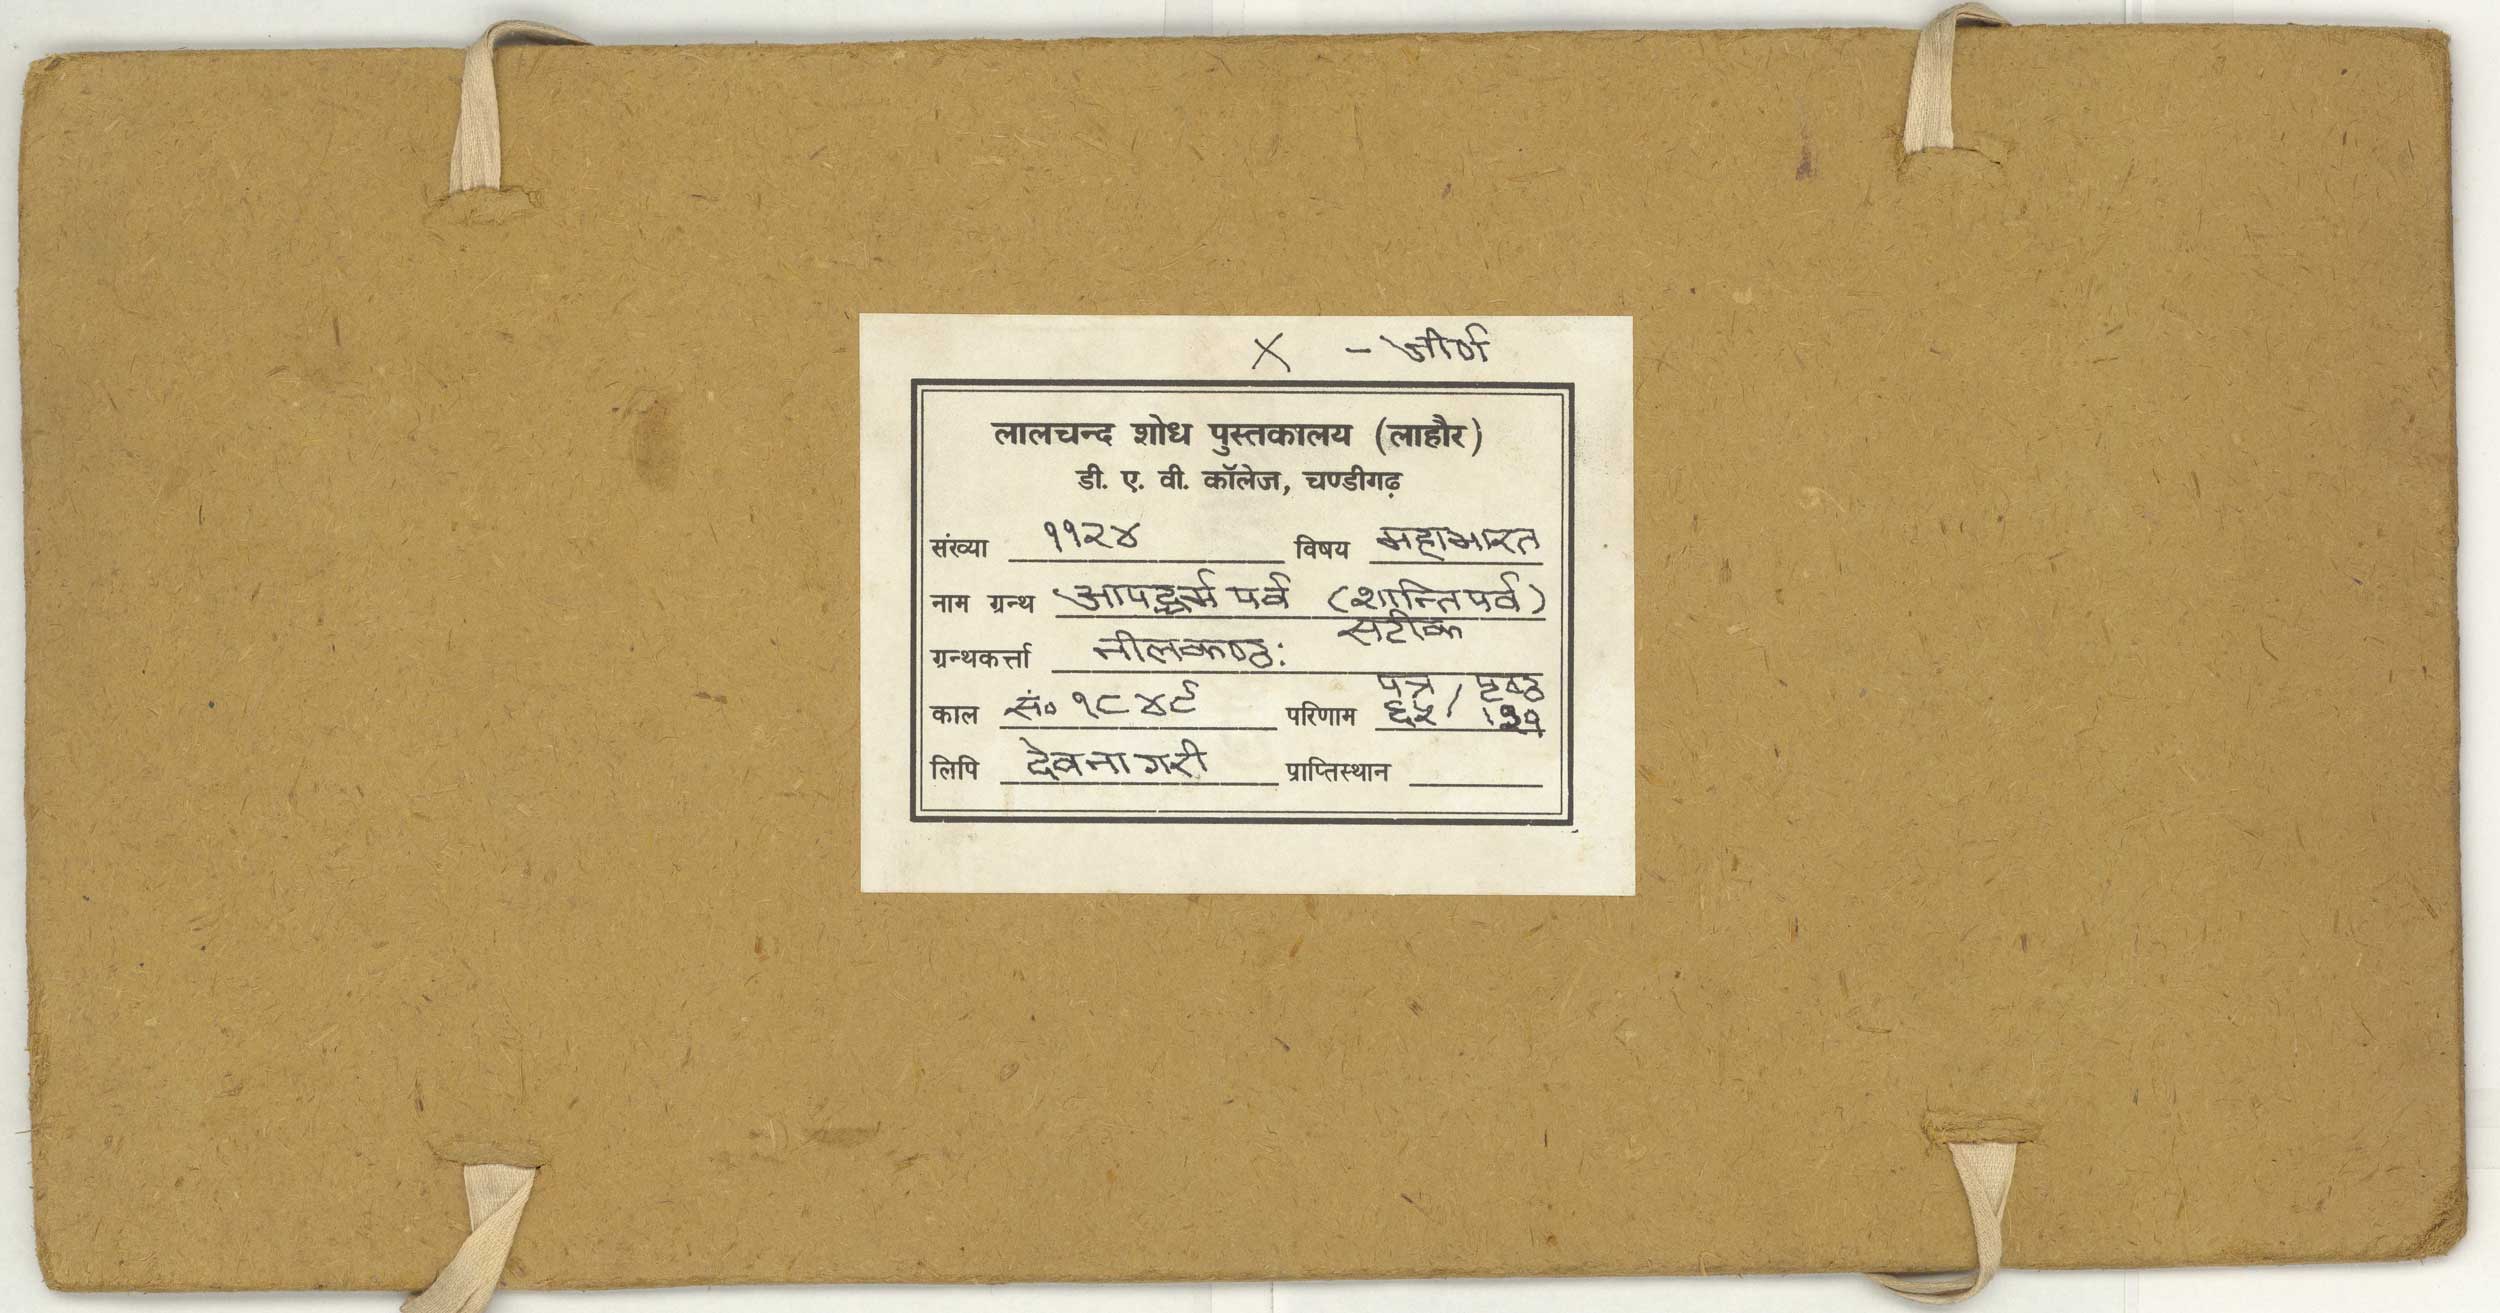 X - जीर्ण
लालचन्द शोध पुस्तकालय (लाहौर)
डी. ए. वी. कॉलेज, चण्डीगढ़
संख्या ११२४ विषय महाभारत
नाम ग्रन्थ आपद्धर्म पर्व (शान्तिपर्व)
सटीक
ग्रन्थकर्त्ता नीलकण्ठः
पत्र / पृष्ठ
काल सं० १८४९ परिणाम ६५ / १३०
लिपि देवनागरी प्राप्तिस्थान